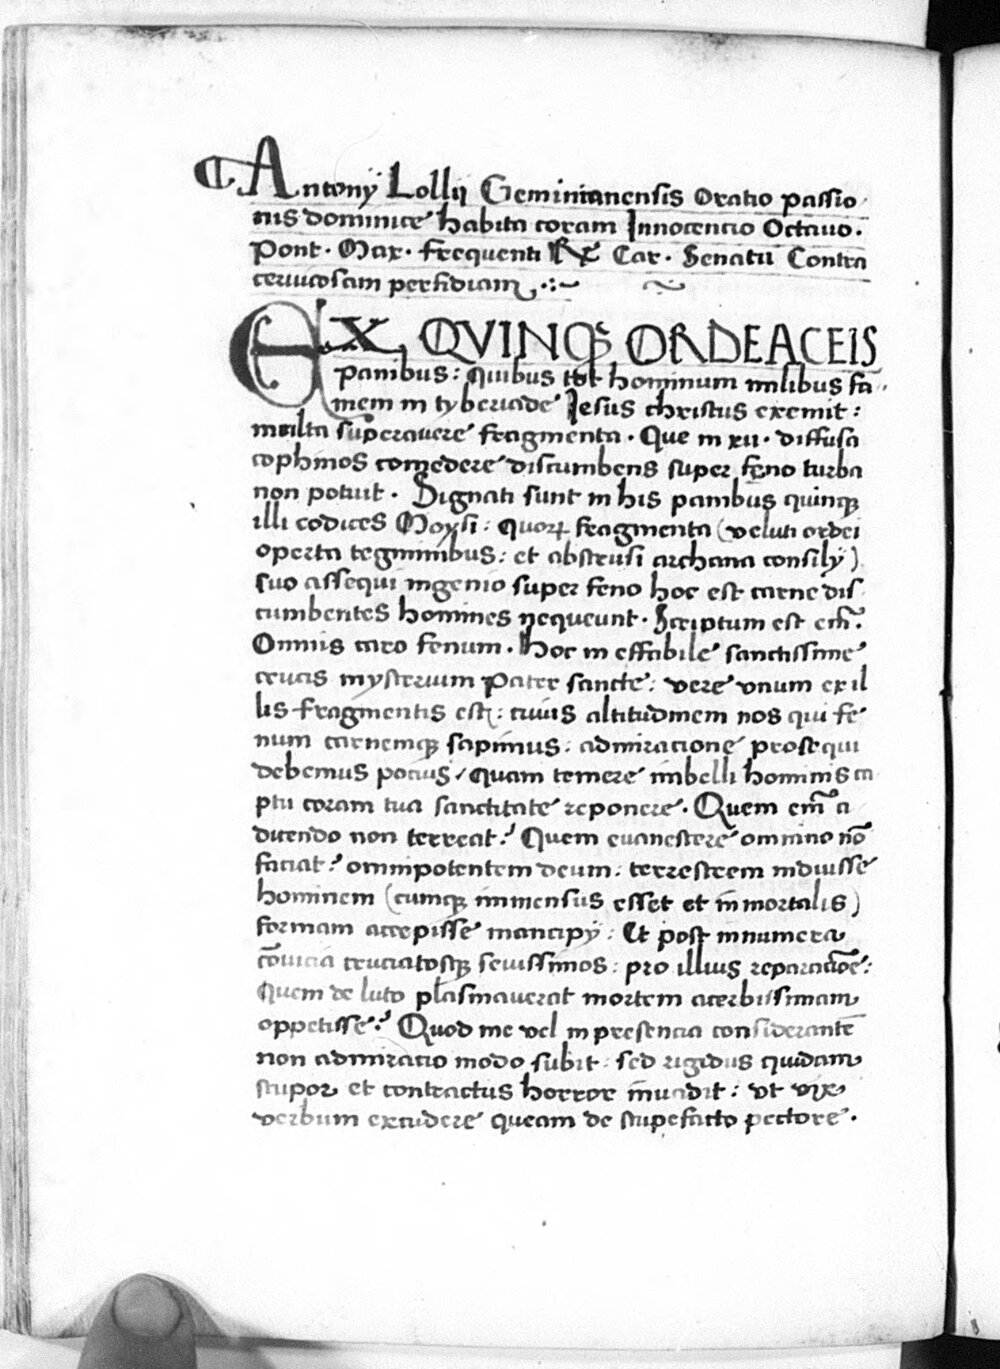 Antonÿ Lollij Geminianensis Oratio passio
nis dominice habita coram Innocencio Octauo.
Pont. Max. frequenti Car. Senatu Contra
ceruicosam perfidiam
EX QVINQ ORDEACEIS
panibus: quibus tot hominum milibus fa
mem in tyberiade Jesus christus exemit:
multa superauere fragmenta. Que in xii. diffusa
cophinos comedere discumbens super feno turba
non potuit. Signati sunt in his panibus quinqꝫ
illi codices Moysi: quoꝝ fragmenta (veluti ordei
operta tegminibus: et abstrusi archana consilÿ)
suo assequi ingenio super feno hoc est carne dis
cumbentes homines nequeunt. Scriptum est em̄.
Omnis caro fenum. Hoc ineffabile sanctissime
crucis mysterium Pater sancte: vere vnum ex il
lis fragmentis est: cuius altitudinem nos qui fe
num carnemqꝫ sapimus: admiracione prosequi
debemus pocius, quam temere imbelli hominis ca
ptu coram tua sanctitate reponere. Quem em̄ a
dicendo non terreat? Quem euanescere omnino nō
faciat? omnipotentem deum: terrestrem induisse
hominem (cumqꝫ immensus esset et in mortalis)
formam accepisse mancipÿ: Et post innumera
cōuicia cruciatosqꝫ seuissimos: pro illius reparacōe:
Quem de luto plasmauerat mortem acerbissimam
oppetisse? Quod me vel in presencia considerantē
non admiracio modo subit: sed rigidus quidam
stupor et contractus horror īnuadit: vt vix
verbum excudere queam de stupefacto pectore.